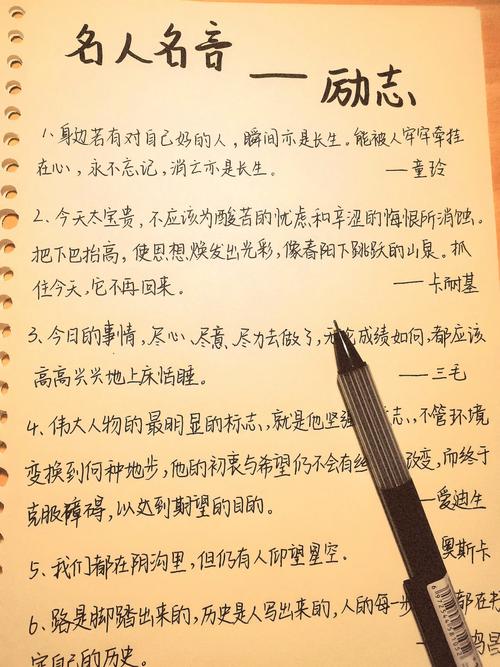 名人名言
——励志
1、身边若有对自己好的人，瞬间亦是长生。能被人牢牢牵挂
在心，永不忘记，消亡亦是长生。 ——童玲
2、今天太宝贵，不应该为酸苦的忧虑和辛涩的悔恨所消蚀。
把下巴抬高，使思想焕发出光彩，像春阳下跳跃的山泉。抓
住今天，它不再回来。 ——卡耐基
3、今日的事情，尽心、尽意、尽力去做了，无论成绩如何，都应该
高高兴兴地上床恬睡。 ——三毛
4、伟大人物的最明显的标志，就是他坚 志，不管环境
变换到何种地步，他的初衷与希望仍不会有 改变，而终于
克服障碍，以达到期望的目的。 —爱迪生
5、我们都在阴沟里，但仍有人仰望星空. 奥斯卡
6、路是脚踏出来的，历史是人写出来的，人的每一步 都在
自己的历史。